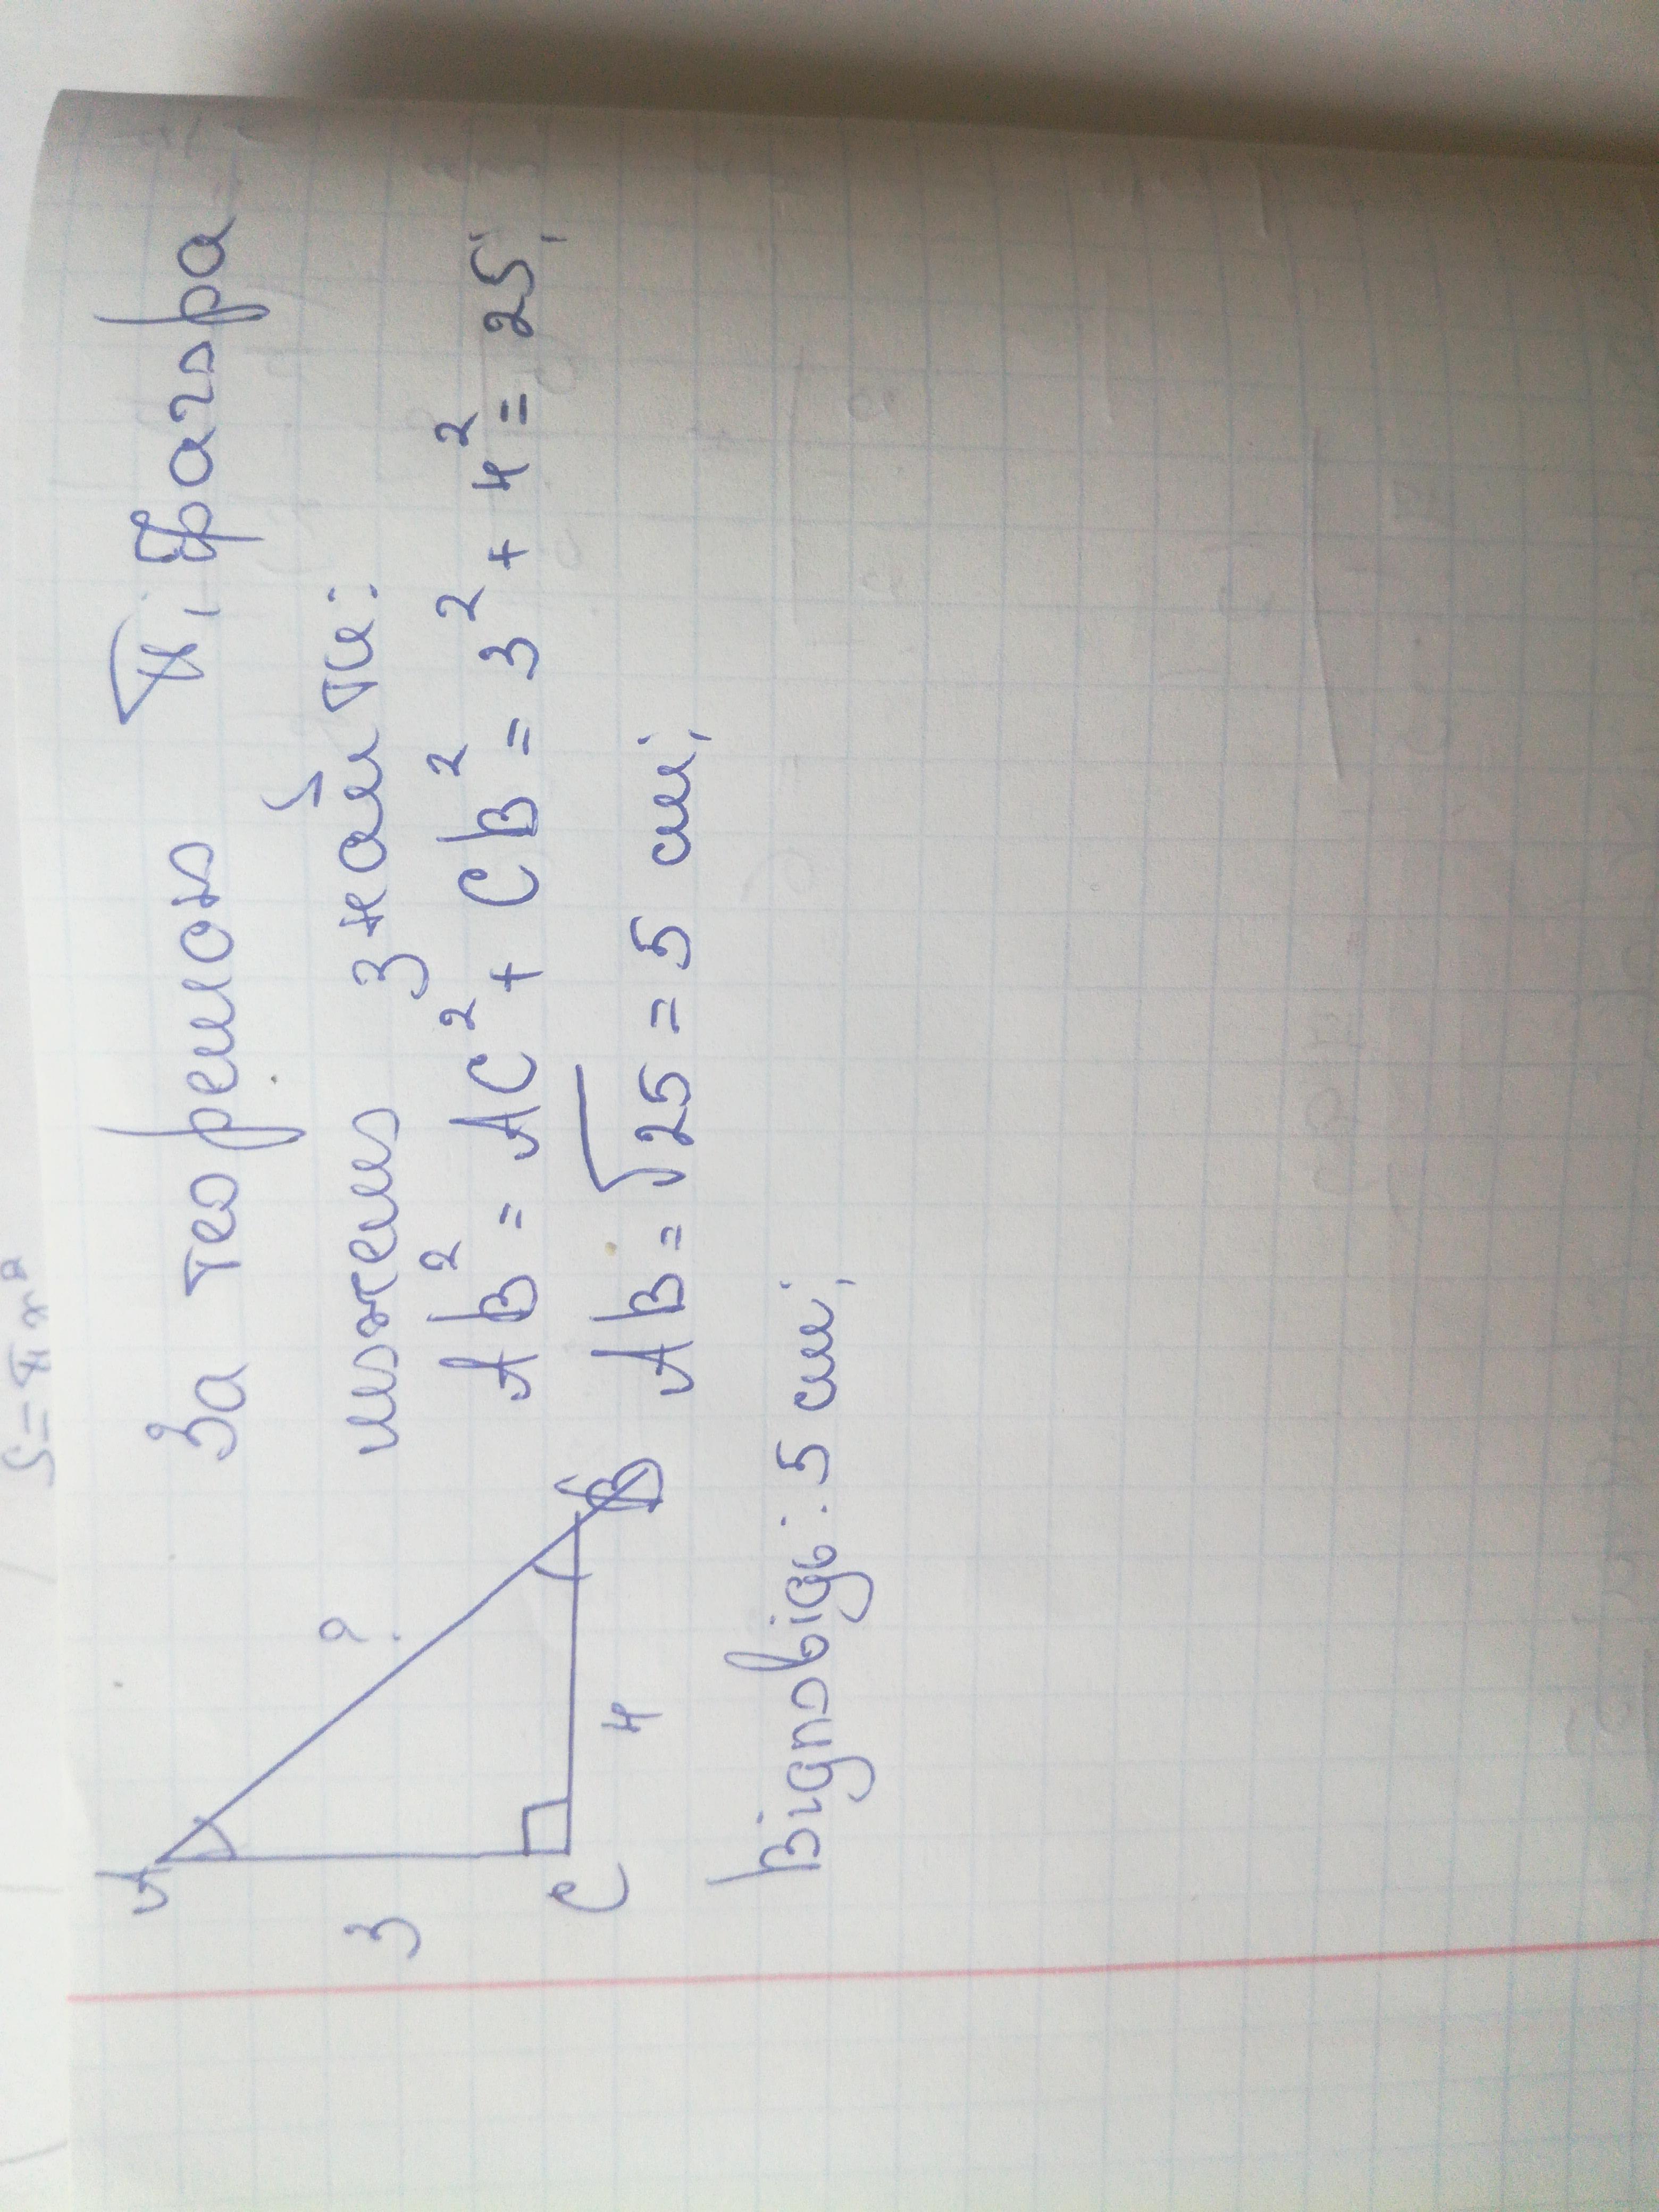 S = π r²
За теоремою Піфагора
можемо знайти:
A
?
3
C
4
B
AB² = AC² + CB² = 3² + 4² = 25;
AB = √25 = 5 см;
Відповідь: 5 см;